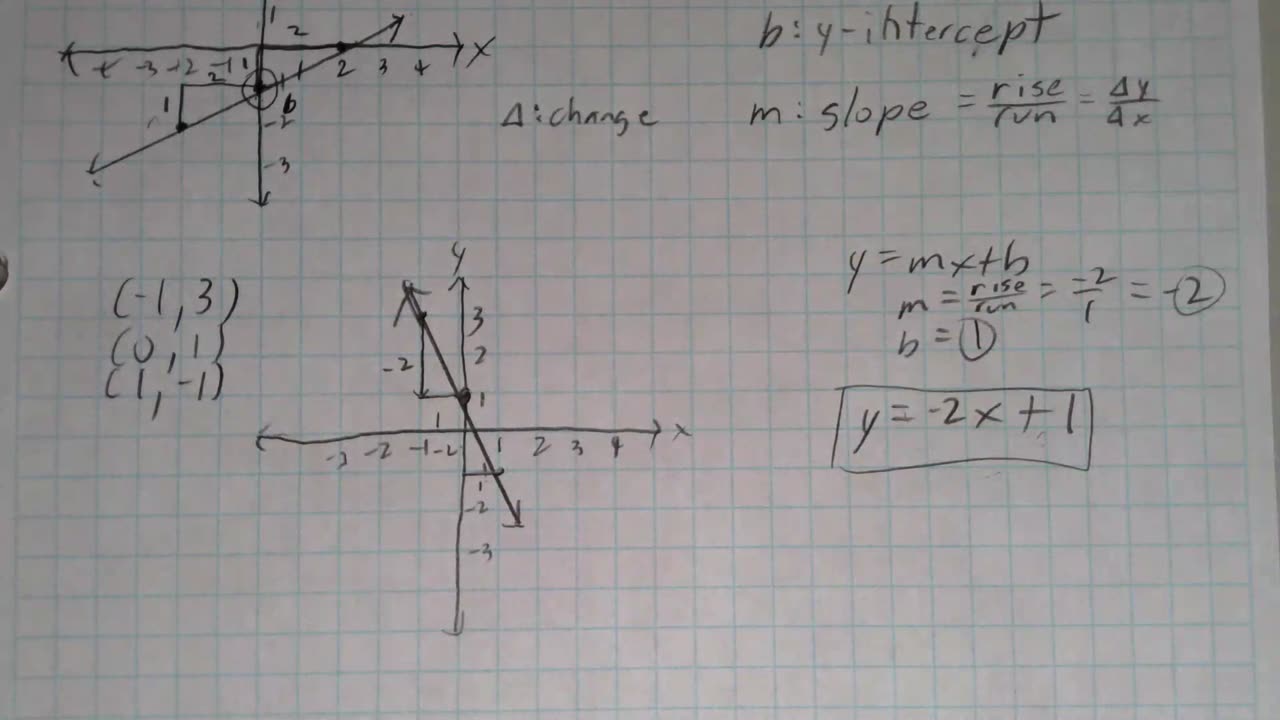 1
2
x
-4 -3 -2 -1 1 1 2 3 4
2
1
b
-2
-3
b: y-intercept
Δ: change
m: slope = rise/run = Δy/Δx
(-1, 3)
(0, 1)
(1, -1)
y
3
2
-2
1
1
x
-3 -2 -1 -2 1 2 3 4
1
-2
-3
y = mx+b
m = rise/run = -2/1 = -2
b = 1
y = -2x + 1